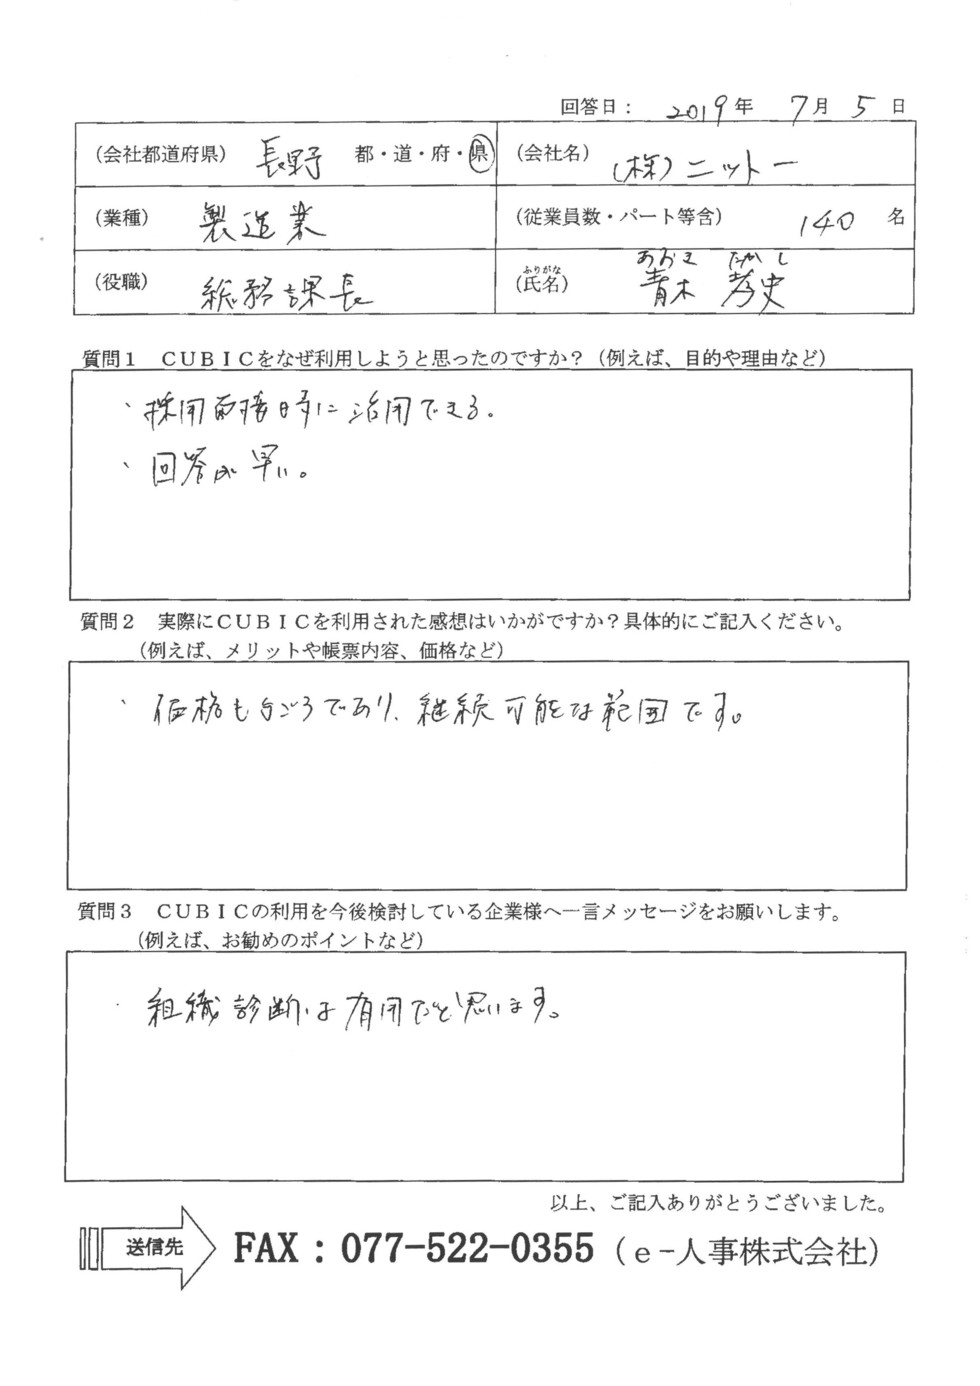 回答日： 2019年 7月 5日
（会社都道府県） 長野 都・道・府・県 （会社名） （株）ニットー
（業種） 製造業 （従業員数・パート等含） 140 名
あおき たかし
（役職） 総務課長 （氏名） 青木 孝史
ふりがな
質問１ ＣＵＢＩＣをなぜ利用しようと思ったのですか？（例えば、目的や理由など）
、採用面接時に活用できる。
、回答が早い。
質問２ 実際にＣＵＢＩＣを利用された感想はいかがですか？具体的にご記入ください。
（例えば、メリットや帳票内容、価格など）
、価格も手ごろであり、継続可能な範囲です。
質問３ ＣＵＢＩＣの利用を今後検討している企業様へ一言メッセージをお願いします。
（例えば、お勧めのポイントなど）
・組織診断は有用だと思います。
以上、ご記入ありがとうございました。
送信先 FAX：077-522-0355（ｅ-人事株式会社）